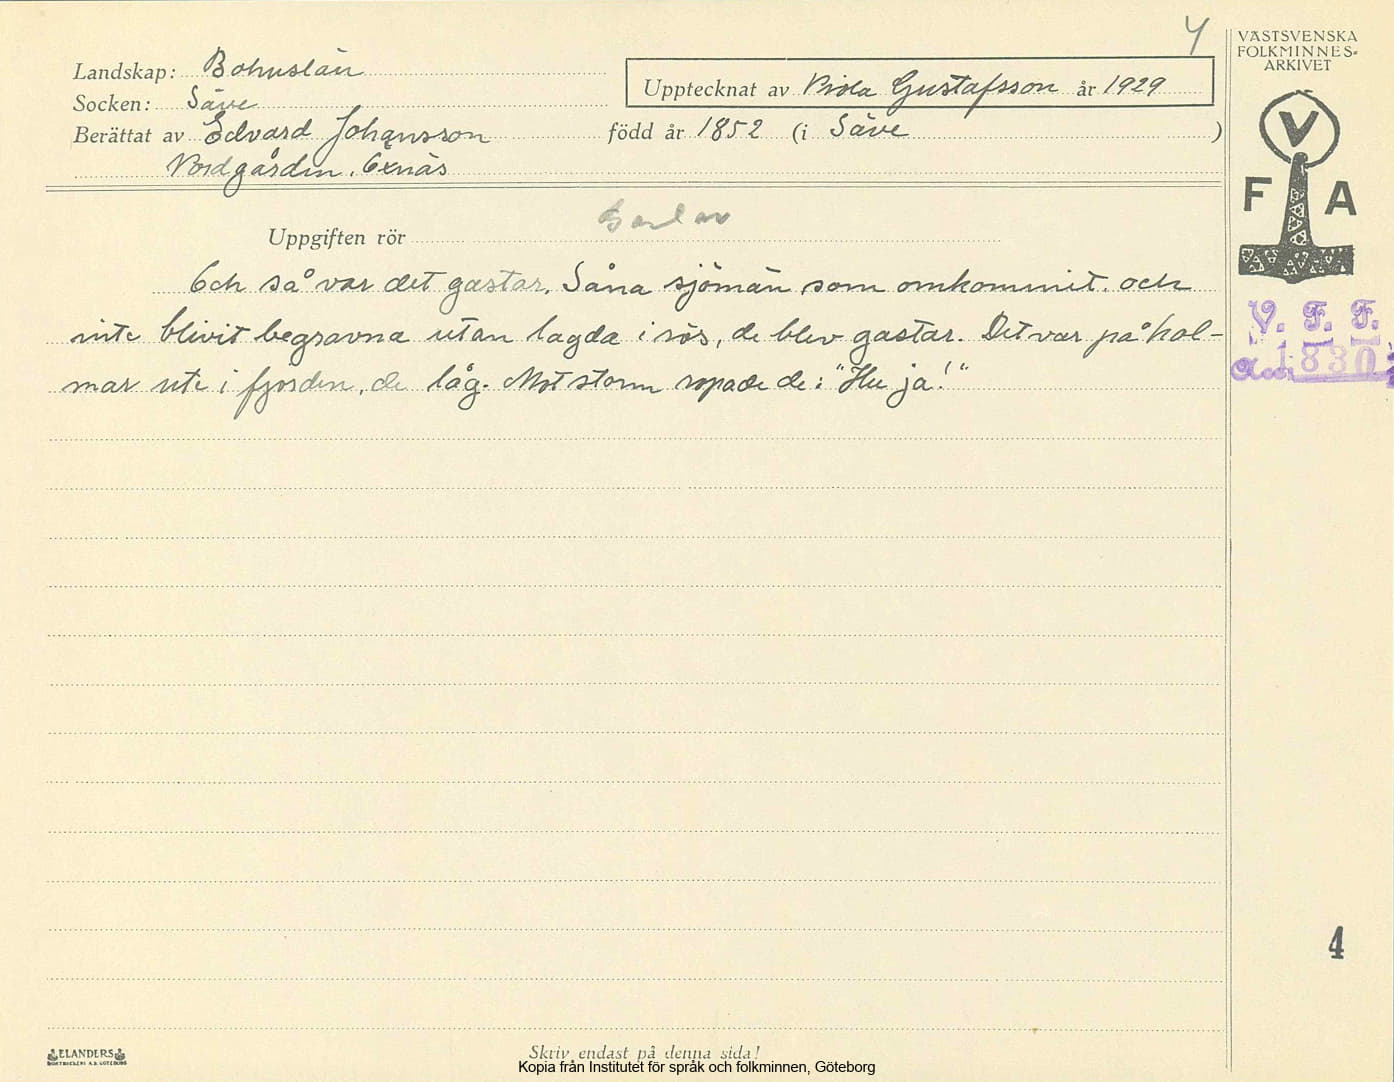 4
VÄSTSVENSKA
FOLKMINNES-
ARKIVET
Landskap: Bohuslän
Upptecknat av Viola Gustafsson år 1929
Socken: Säve
Berättat av Edvard Johansson född år 1852 (i Säve )
Nordgården, Exnäs
V
F A
Uppgiften rör Gastar
Och så var det gastar. Såna sjömän som omkommit och
inte blivit begravna utan lagda i rös, de blev gastar. Det var på hol-
mar ute i fjorden, de låg. Mot storm ropade de: "Hu ja!"
V. F. F.
Acc. 1830
4
ELANDERS
BOKTRYCKERI A.B. GÖTEBORG
Skriv endast på denna sida!
Kopia från Institutet för språk och folkminnen, Göteborg